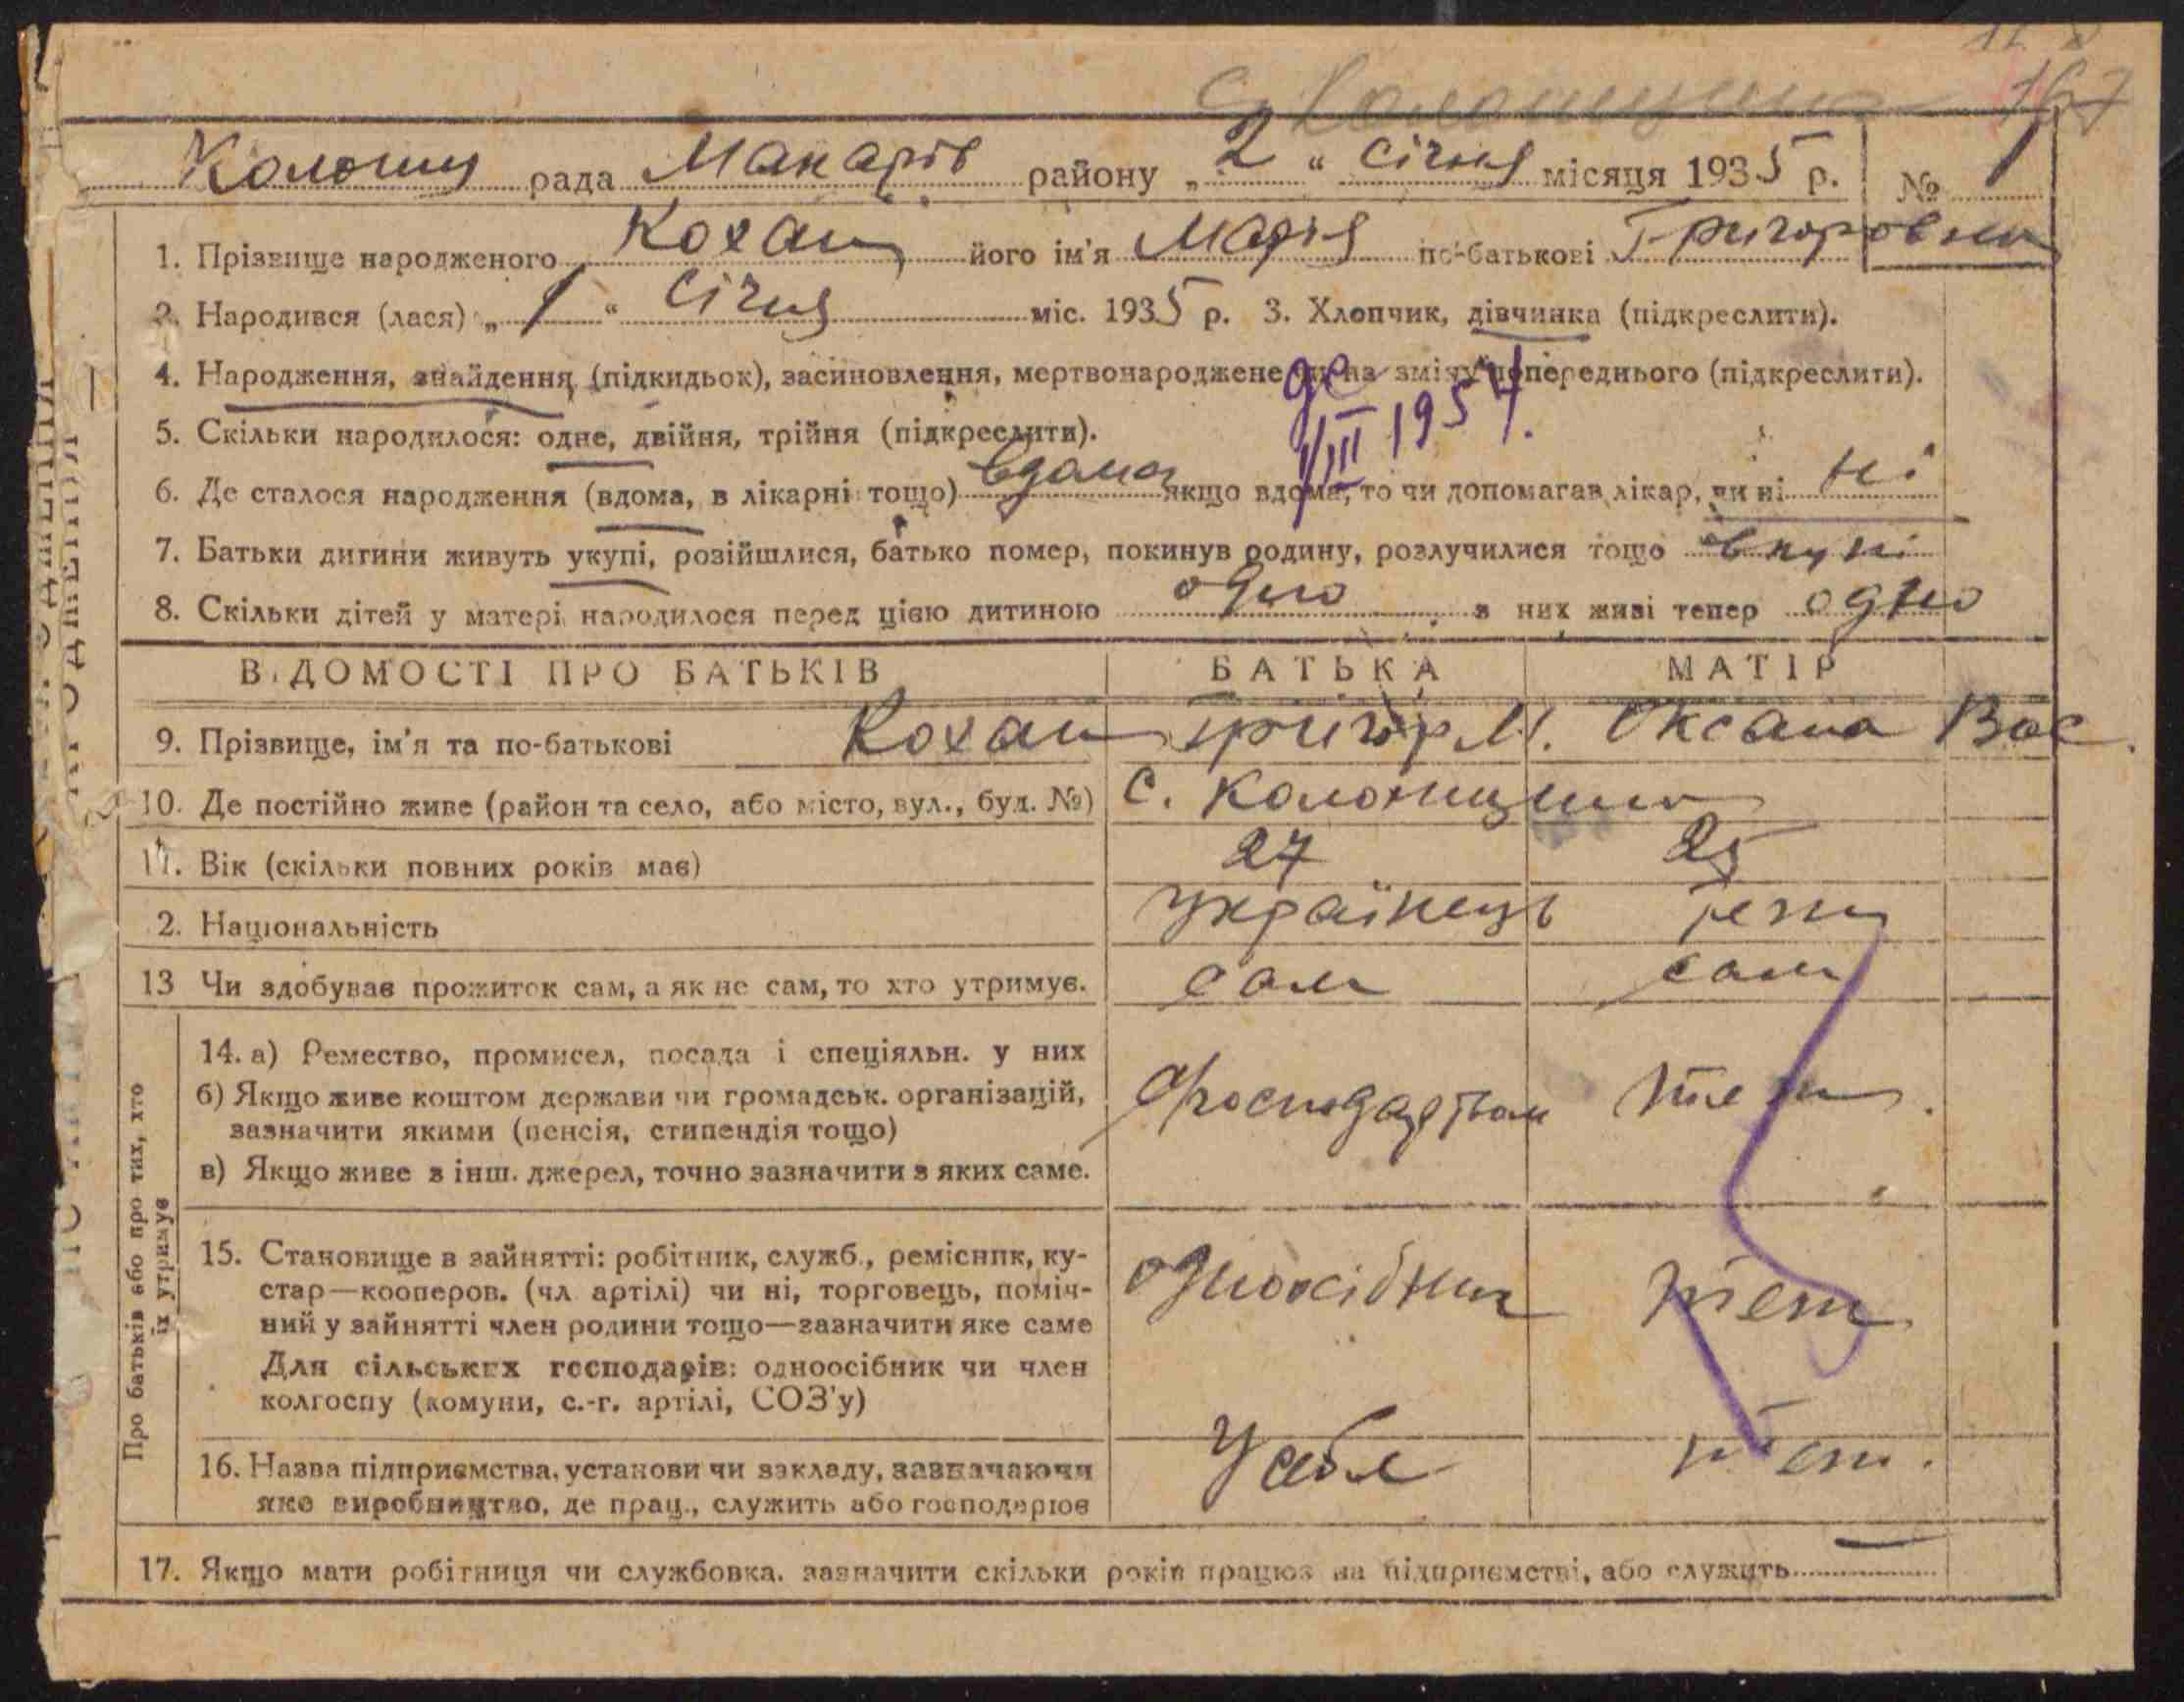 с. Колонщина 167
Колонщ рада Макарів району „2“ січня місяця 1935 р. № 1
1. Прізвище народженого Кохан його ім'я Марія по-батькові Григоровна
2. Народився (лася) „1“ Січня міс. 1935 р. 3. Хлопчик, дівчинка (підкреслити).
4. Народження, знайдення (підкидьок), засиновлення, мертвонароджене чи на зміну попереднього (підкреслити).
5. Скільки народилося: одне, двійня, трійня (підкреслити).
1/III 1957.
6. Де сталося народження (вдома, в лікарні тощо) вдома якщо вдома, то чи допомагав лікар, чи ні ні
7. Батьки дитини живуть укупі, розійшлися, батько помер, покинув родину, розлучилися тощо вкупі
8. Скільки дітей у матері народилося перед цією дитиною одно з них живі тепер одно
ВІДОМОСТІ ПРО БАТЬКІВ БАТЬКА МАТІР
9. Прізвище, ім'я та по-батькові Кохан Григор М. Оксана Вас.
10. Де постійно живе (район та село, або місто, вул., буд. №) с. Колонщина
11. Вік (скільки повних років має) 27 25
2. Національність Українець теж
13 Чи здобував прожиток сам, а як не сам, то хто утримує. сам сам
Про батьків або про тих, хто їх утримує
14. а) Ремество, промисел, посада і спеціяльн. у них
б) Якщо живе коштом держави чи громадськ. організацій,
зазначити якими (пенсія, стипендія тощо)
в) Якщо живе з інш. джерел, точно зазначити з яких саме.
теж.
15. Становище в зайнятті: робітник, служб., ремісник, ку-
стар—кооперов. (чл. артілі) чи ні, торговець, поміч-
ний у зайнятті член родини тощо—зазначити яке саме
Для сільських господарів: одноосібник чи член
колгоспу (комуни, с.-г. артілі, СОЗ'у)
одноосібник теж
16. Назва підприємства, установи чи закладу, зазначаючи
яке виробництво, де прац., служить або господарює
У себе теж.
17. Якщо мати робітниця чи службовка, зазначити скільки років працює на підприємстві, або служить —